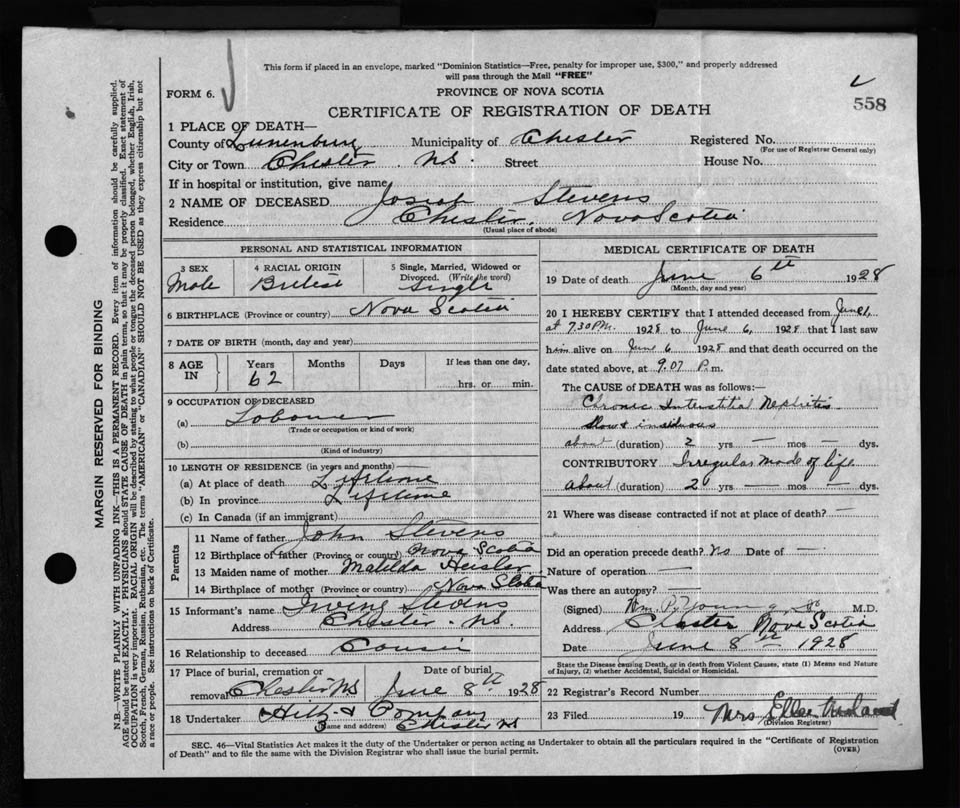 This form if placed in an envelope, marked "Dominion Statistics—Free, penalty for improper use, $300," and properly addressed
will pass through the Mail "FREE"
FORM 6.
PROVINCE OF NOVA SCOTIA
558
CERTIFICATE OF REGISTRATION OF DEATH
1 PLACE OF DEATH—
County of Lunenburg Municipality of Chester Registered No.
(For use of Registrar General only)
City or Town Chester N.S. Street House No.
If in hospital or institution, give name
2 NAME OF DECEASED Josiah Stevens
Residence Chester, Nova Scotia
(Usual place of abode)
PERSONAL AND STATISTICAL INFORMATION
3 SEX 4 RACIAL ORIGIN 5 Single, Married, Widowed or
Divorced. (Write the word)
Male British Single
6 BIRTHPLACE (Province or country) Nova Scotia
7 DATE OF BIRTH (month, day and year)
8 AGE IN Years Months Days If less than one day,
62 hrs. or min.
9 OCCUPATION OF DECEASED
(a) Labourer
(Trade or occupation or kind of work)
(b)
(Kind of industry)
10 LENGTH OF RESIDENCE (in years and months)
(a) At place of death Lifetime
(b) In province Lifetime
(c) In Canada (if an immigrant)
Parents
11 Name of father John Stevens
12 Birthplace of father (Province or country) Nova Scotia
13 Maiden name of mother Matilda Heisler
14 Birthplace of mother (Province or country) Nova Scotia
15 Informant's name Irving Stevens
Address Chester N.S.
16 Relationship to deceased Cousin
17 Place of burial, cremation or Date of burial
removal Chester N.S. June 8th 1928
18 Undertaker & Company
Name and address Chester N.S.
MEDICAL CERTIFICATE OF DEATH
19 Date of death June 6th 1928
(Month, day and year)
20 I HEREBY CERTIFY that I attended deceased from June 1,
at 7.30 P.M. 1928 to June 6, 1928 that I last saw
him alive on June 6 1928 and that death occurred on the
date stated above, at 9.07 P.m.
The CAUSE of DEATH was as follows:—
Chronic Interstitial Nephritis
slow & insidious
about (duration) 2 yrs — mos — dys.
CONTRIBUTORY Irregular mode of life
about (duration) 2 yrs — mos — dys.
21 Where was disease contracted if not at place of death? —
Did an operation precede death? No Date of —
Nature of operation —
Was there an autopsy? —
(Signed) Wm. P. Young M.D.
Address Chester Nova Scotia
Date June 8th 1928
State the Disease causing Death, or in death from Violent Causes, state (1) Means and Nature
of Injury, (2) whether Accidental, Suicidal or Homicidal.
22 Registrar's Record Number
23 Filed 19 Mrs Ellen
(Division Registrar)
SEC. 46—Vital Statistics Act makes it the duty of the Undertaker or person acting as Undertaker to obtain all the particulars required in the "Certificate of Registration
of Death" and to file the same with the Division Registrar who shall issue the burial permit.
(OVER)
MARGIN RESERVED FOR BINDING
N.B.—WRITE PLAINLY WITH UNFADING INK—THIS IS A PERMANENT RECORD. Every item of information should be carefully supplied.
AGE should be stated EXACTLY. PHYSICIANS should STATE CAUSE OF DEATH in plain terms, so that it may be properly classified. Exact statement of
OCCUPATION is very important. RACIAL ORIGIN will be described by stating to what people or tongue the deceased person belonged, whether English, Irish,
Scotch, French, German, Russian, Ruthenian, etc. The terms "AMERICAN" or "CANADIAN" SHOULD NOT BE USED as they express citizenship but not
a race or people. See instructions on back of Certificate.